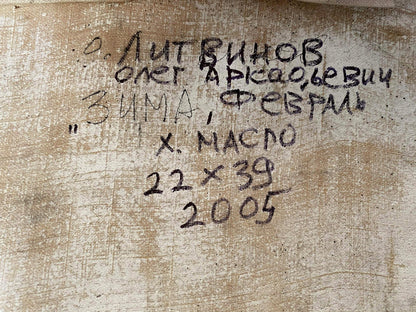 О. ЛИТВИНОВ
ОЛЕГ АРКАДЬЕВИЧ
"ЗИМА, ФЕВРАЛЬ
Х. МАСЛО
22 × 39
2005